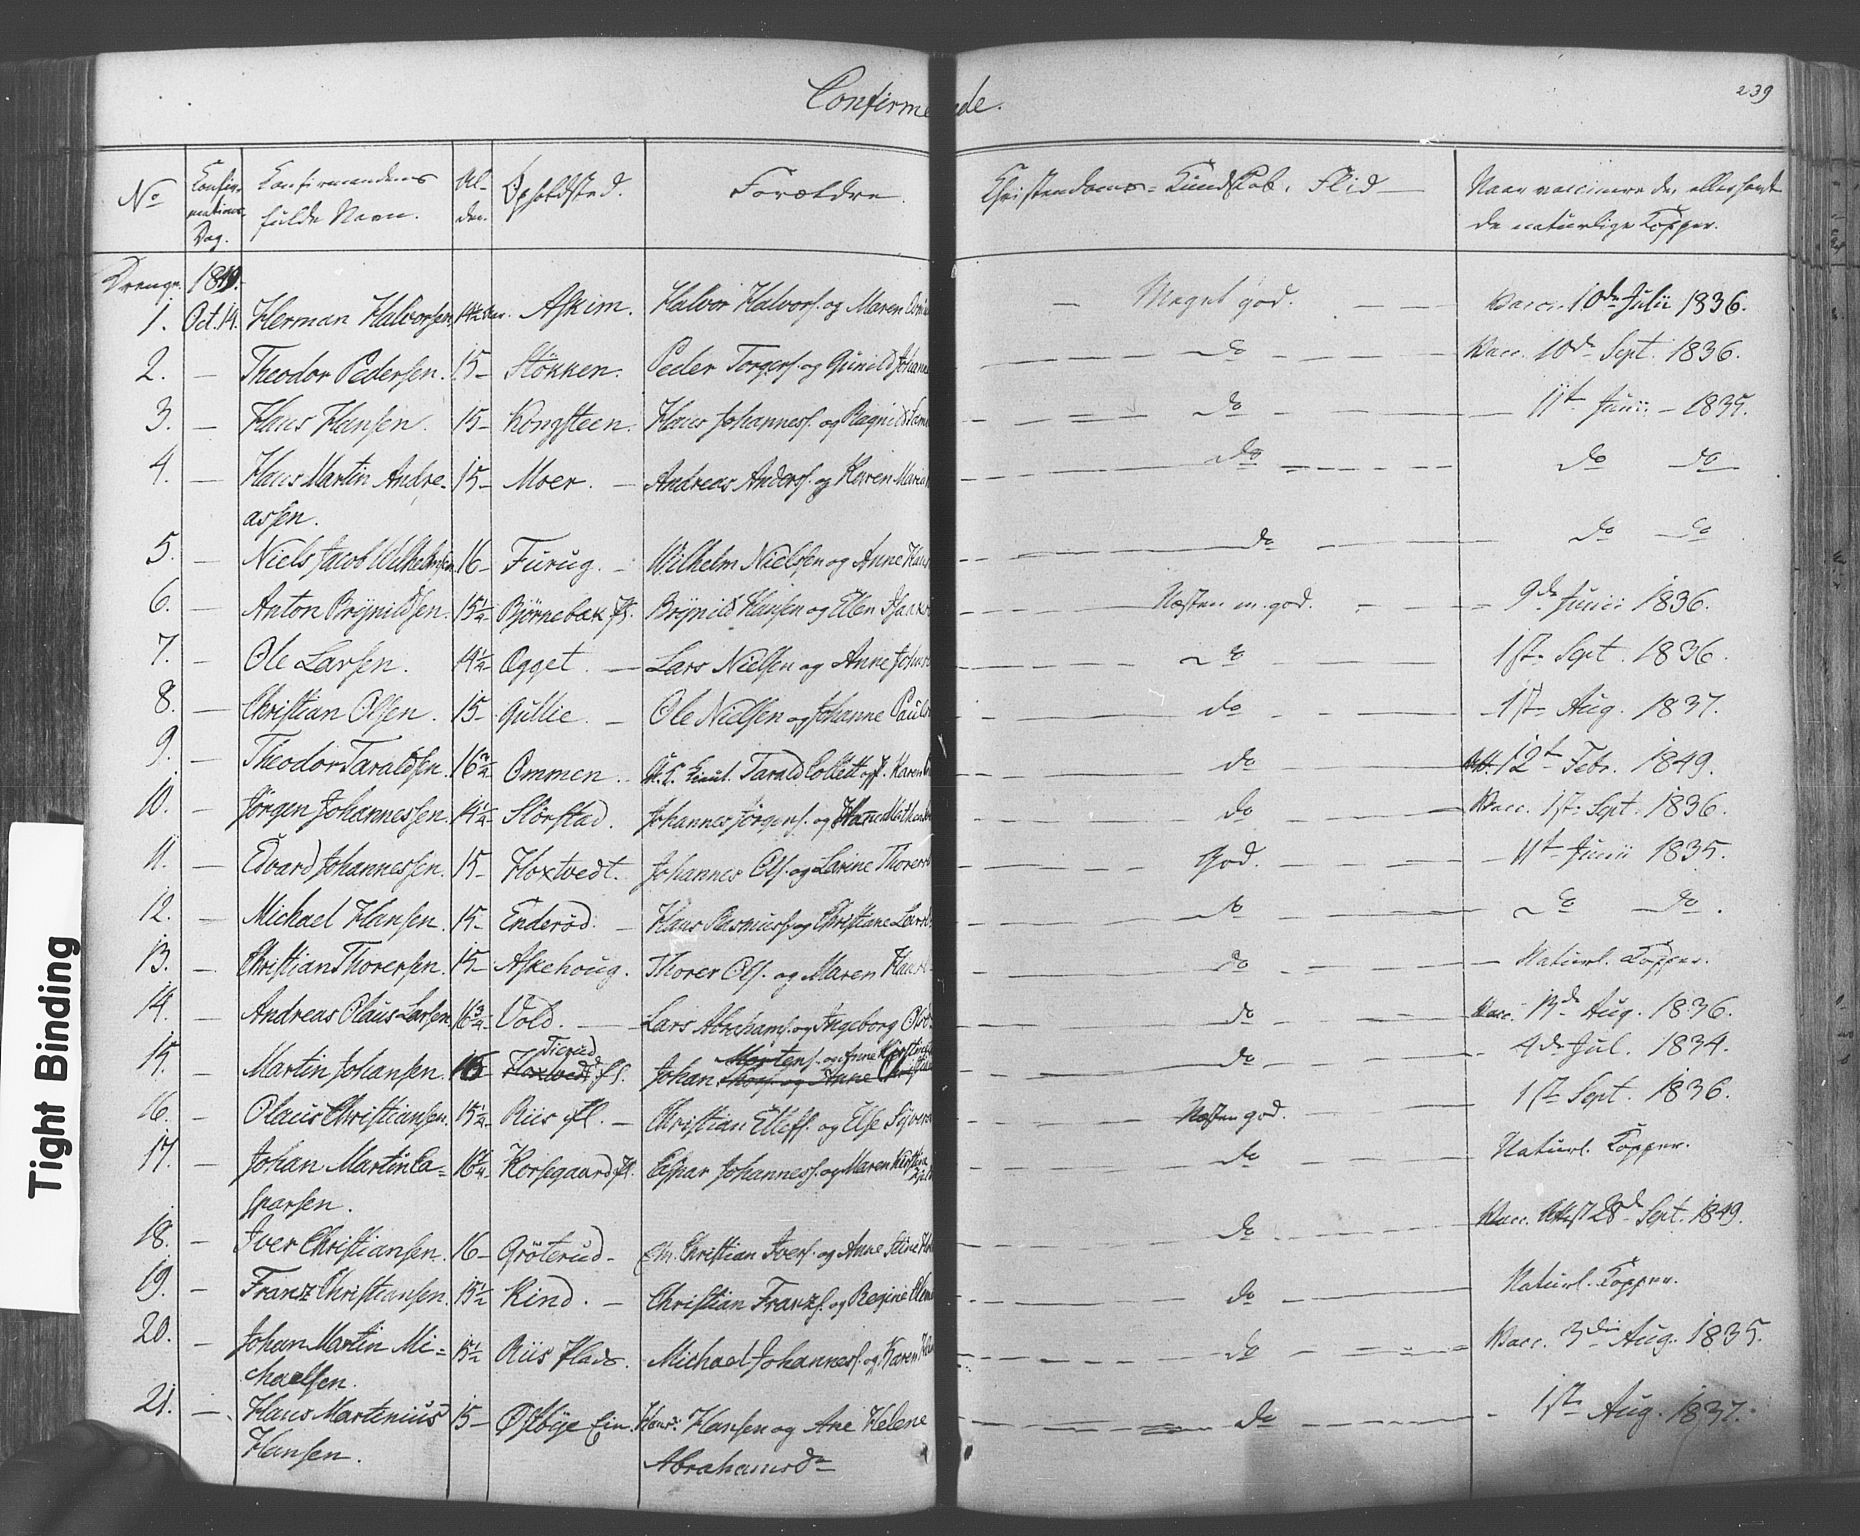 Confirmerede.
239
No
Confirmations Dag.
Konfirmandens fulde Navn.
Alder.
Opholdsted.
Forældre.
Christendoms-Kundskab, Flid
Naar vaccinerede eller havt de naturlige Kopper.
Drenge. 1849.
1. Oct. 14. Herman Halvorsen 14½ Aar. Askim. Halvor Halvors. og Maren — Meget god. — Vacc. 10de Julii 1836.
2. — Theodor Pedersen. 15 – Stökken. Peder Torgers. og Gunild — do — Vacc. 10de Sept. 1836.
3. — Hans Hansen. 15 – Kongsteen. Hans Johannes. og Ragnild — do — 11te Junii – 1835.
4. — Hans Martin Andre- 15 – Moer. — Andreas Anders. og Karen Maria — do — do do
assen.
5. — Niels Jacob Wilhelmsen 16 – Furug. – Wilhelm Nielsen og Anne — do — do do
6. — Anton Brynildsen. 15¼ Björnebæk Pl. Brynild Hansen og Ellen — Næsten m. god. — 9de Junii 1836.
7. — Ole Larsen. 14½ Ogget. — Lars Nielsen og Anne — do — 1ste Sept. 1836.
8. — Christian Olsen. 15 – Gullie. – Ole Nielsen og Johanne — do — 1ste Aug. 1837.
9. — Theodor Taraldsen. 16¾ Ommen. Tarald Collett og Karen — do — Att. 12te Febr. 1849.
10. — Jörgen Johannessen. 14¼ Störstad. Johannes Jörgens. og — do — Vacc. 1ste Sept. 1836.
11. — Edvard Johannessen. 15 – Hoxtvedt. Johannes Ols. og Larine — God. — 11te Junii 1835.
12. — Michael Hansen. 15 – Enderöd. – Hans Rasmus. og Christiane — do — do do.
13. — Christian Thorersen. 15 – Askehoug. Thorer Ols. og Maren — do — Naturl. Kopper.
14. — Andreas Olaus Larsen 16¾ Vold. — Lars Abrahams. og Ingeborg — do — Vacc. 13de Aug. 1836.
Mortens. og Anne
15. — Martin Johansen. 16 Hoxtvedt Pl. Johan — do — 4de Jul. 1834.
16. — Olaus Christiansen. 15½ Riis Pl. – Christian Ellefs. og Else — Næsten god. — 1ste Sept. 1836.
17. — Johan Martin Ca- 16¼ Korsegaard Pl. Caspar Johannes. og Maren — do — Naturl. Kopper.
sparsen.
18. — Iver Christiansen. 16 – Gröterud – Christian Ivers. og Anne — do — Vacc. Attest 28de Sept. 1849.
19. — Franz Christiansen. 15½ Kind. – Christian Franzs. og Regine — do — Naturl. Kopper.
20. — Johan Martin Mi- 15½ Riis Plads. Michael Johannes. og Karen — do — Vacc. 3die Aug. 1835.
chaelsen.
21. — Hans Martinius 15 – Östbye Ein. Hans Hansen og Ane Helene — do — 1ste Aug. 1837.
Hansen. Abrahamsdr
Tight Binding